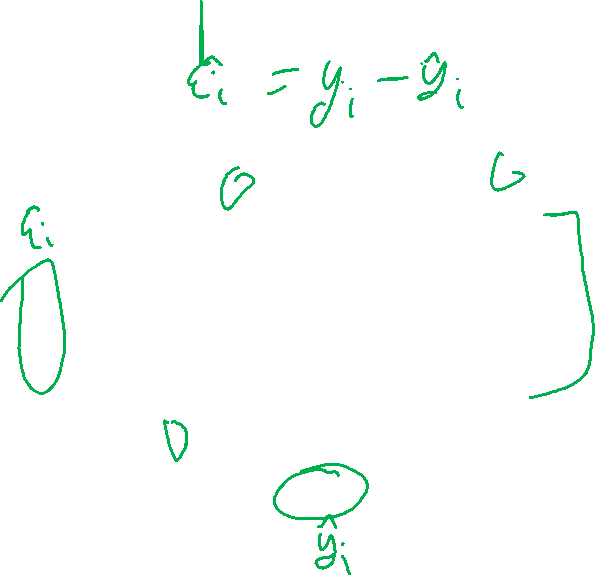 ε̂ᵢ = yᵢ − ŷᵢ
εᵢ
ŷᵢ